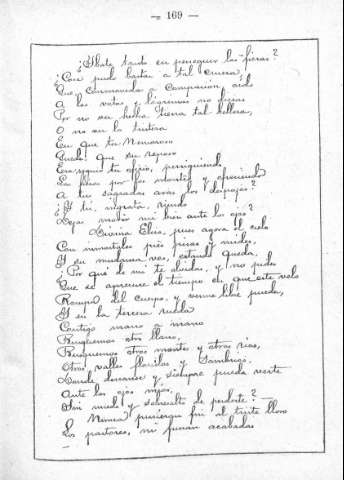 — 169 —
¿Ibate tanto en perseguir las fieras?
¿Cosa pudo bastar a tal crueza,
Que, conmovida a compasión, oido
A los votos y lágrimas no dieras
Por no ver hecha tierra tal belleza,
O no ver la tristeza
En que tu Nemoroso
Queda, que su reposo
Era seguir tu oficio, persiguiendo
Las fieras por los montes, y ofreciendo
A tus sagradas aras los despojos?
¿Y tú, ingrata, riendo
Dejas morir mi bien ante los ojos?
Divina Elisa, pues agora el cielo
Con inmortales pies pisas y mides,
Y su mudanza ves, estando queda,
¿Por qué de mí te olvidas, y no pides
Que se apresure el tiempo en que este velo
Rompa del cuerpo, y verme libre pueda,
Y en la tercera rueda
Contigo mano a mano
Busquemos otro llano,
Busquemos otros montes y otros ríos,
Otros valles floridos y sombríos,
Donde descanse, y siempre pueda verte
Ante los ojos míos,
Sin miedo y sobresalto de perderte?—
Nunca pusieran fin al triste lloro
Los pastores, ni fueran acabadas